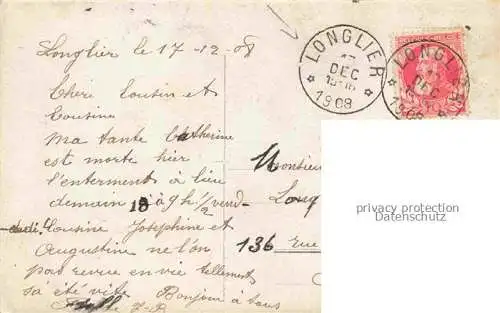 Longlier le 17-12-08
Cheri Cousin et
Cousine
Ma tante Catherine
est morte hier
l'enterment à lieu
demain 18 à 9h 1/2 vend-
-dredi. Cousine Josephine et
Augustine ne l'on
pas revue en vie tellement
sa été vite Bonjour à tous
J-B
LONGLIER
17
DEC
1908
LONGLIER
DEC
1908
Monsieur
136 rue
privacy protection
Datenschutz